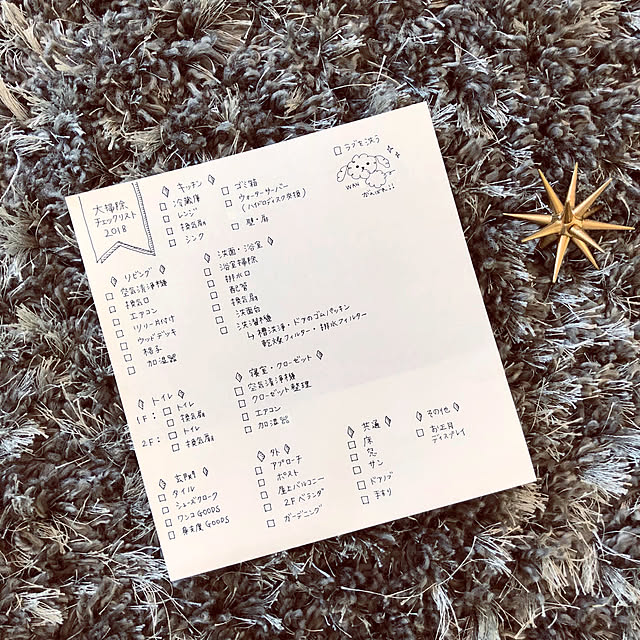 大掃除
チェックリスト
2018
◇ キッチン ◇
□ 冷蔵庫
□ レンジ
□ 換気扇
□ シンク
□ ゴミ箱
□ ウォーターサーバー
(ハイドロディスク交換)
□ 壁・扉
□ ラグを洗う
WAN
◇ リビング ◇
□ 空気清浄機
□ 換気口
□ エアコン
□ ウッドデッキ
□ 椅子
□ 加湿器
◇ 洗面・浴室 ◇
□ 浴室掃除
□ 排水口
□ 配管
□ 換気扇
□ 洗面台
□ 洗濯機
↳ 槽洗浄・ドアのゴムパッキン
乾燥フィルター・排水フィルター
◇ トイレ ◇
1F: □ トイレ
□ 換気扇
2F: □ トイレ
□ 換気扇
◇ 寝室・クローゼット ◇
□ 空気清浄機
□ クローゼット整理
□ エアコン
□ 加湿器
◇ 玄関 ◇
□ タイル
□ シューズクローク
□ ワンコGOODS
□ GOODS
◇ 外 ◇
□ アプローチ
□ ポスト
□ 屋上バルコニー
□ 2Fベランダ
□ ガーデニング
◇ 共通 ◇
□ 床
□ 窓
□ サン
□ ドアノブ
□ 手すり
◇ その他 ◇
□ お正月
ディスプレイ